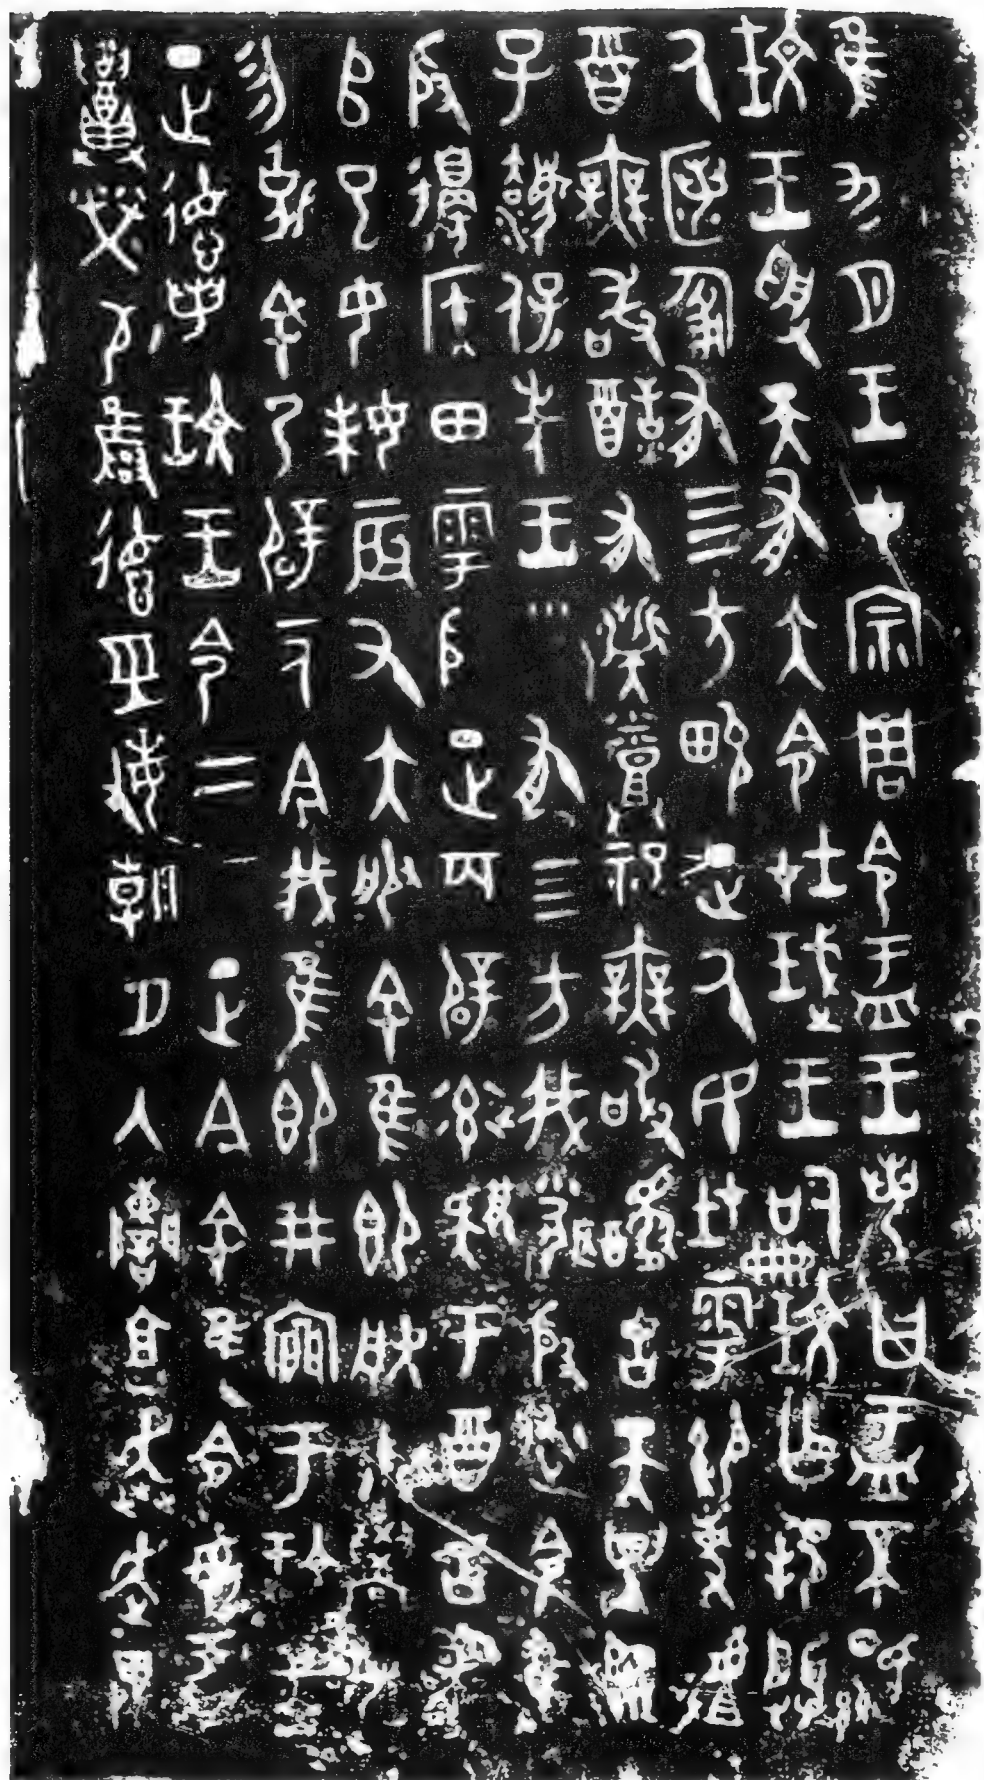 隹九月王才宗周令盂王若曰盂不顯
玟王受天有大令在珷王嗣玟乍邦闢
厥匿匍有四方畯正厥民在雩御事𠭯
酉無敢酖有髭烝祀無敢醻古天異臨
子灋保先王□有四方我聞殷述令隹
殷邊侯田雩殷正百辟率肄于酉古喪
𠂤已女妹辰又大服余隹即朕小學女
勿𠛱余乃辟一人今我隹即井㐭于玟王
正德若玟王令二三正今余隹令女盂
召榮敬雍德巠敏朝夕入讕享奔走畏